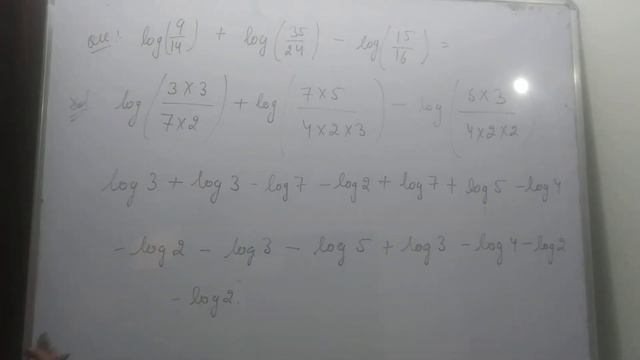 Que: log(9/14) + log(35/24) - log(15/16) =
Sol log(3×3/7×2) + log(7×5/4×2×3) - log(5×3/4×2×2)
log 3 + log 3 - log 7 - log 2 + log 7 + log 5 - log 4
- log 2 - log 3 - log 5 + log 3 - log 4 - log 2
- log 2.